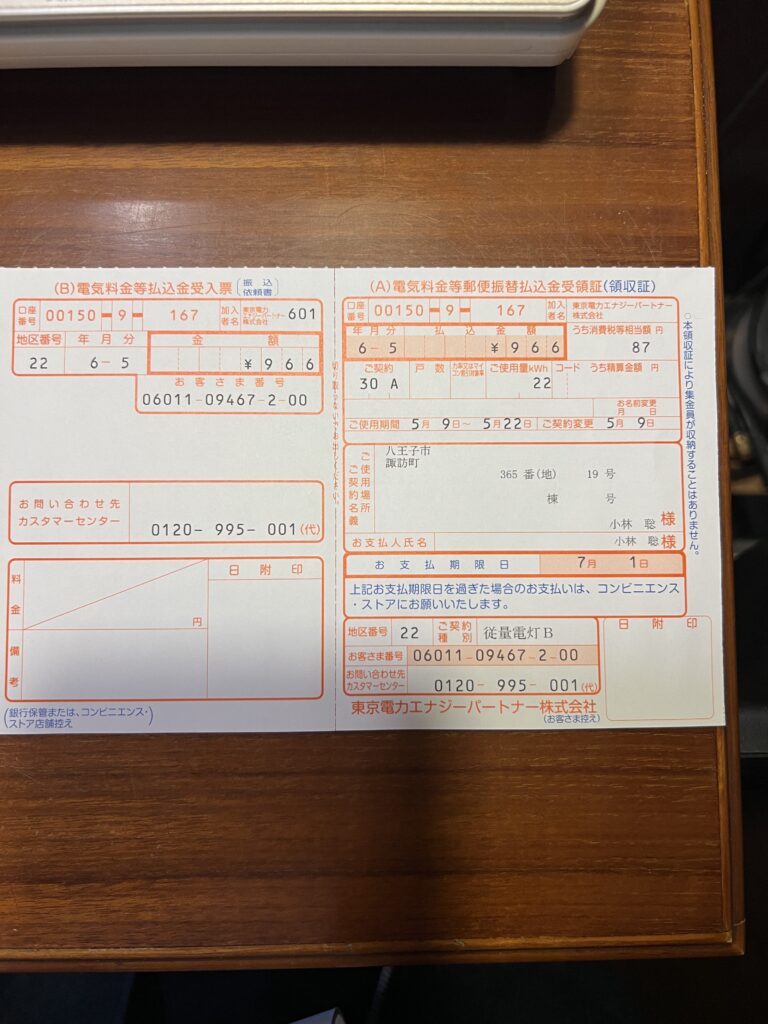 (B)電気料金等払込金受入票(振込依頼書)
口座番号 00150-9- 167 加入者名 東京電力エナジーパートナー株式会社 601
地区番号 年 月 分 金 額
22 6-5 ¥966
お客さま番号
06011-09467-2-00
お問い合わせ先
カスタマーセンター 0120- 995- 001(代)
料金 円 日附印
備考
(銀行保管または、コンビニエンス・ストア店舗控え)
(A)電気料金等郵便振替払込金受領証(領収証)
口座番号 00150-9- 167 加入者名 東京電力エナジーパートナー株式会社
年 月 分 払 込 金 額 うち消費税等相当額 円
6-5 ¥966 87
ご契約 戸数 ご使用量kWh コード うち精算金額 円
30 A 22
お名前変更
月 日
ご使用期間 5月 9日~ 5月22日 ご契約変更 5月 9日
ご使用場所
ご契約名義
八王子市
諏訪町
365 番(地) 19 号
棟 号
小林 聡 様
お支払人氏名 小林 聡 様
お支払期限日 7月 1日
上記お支払期限日を過ぎた場合のお支払いは、コンビニエンス
・ストアにお願いいたします。
地区番号 22 ご契約種別 従量電灯B
お客さま番号 06011-09467-2-00
お問い合わせ先
カスタマーセンター 0120- 995- 001(代)
日附印
東京電力エナジーパートナー株式会社
(お客さま控え)
○本領収証により集金員が収納することはありません。